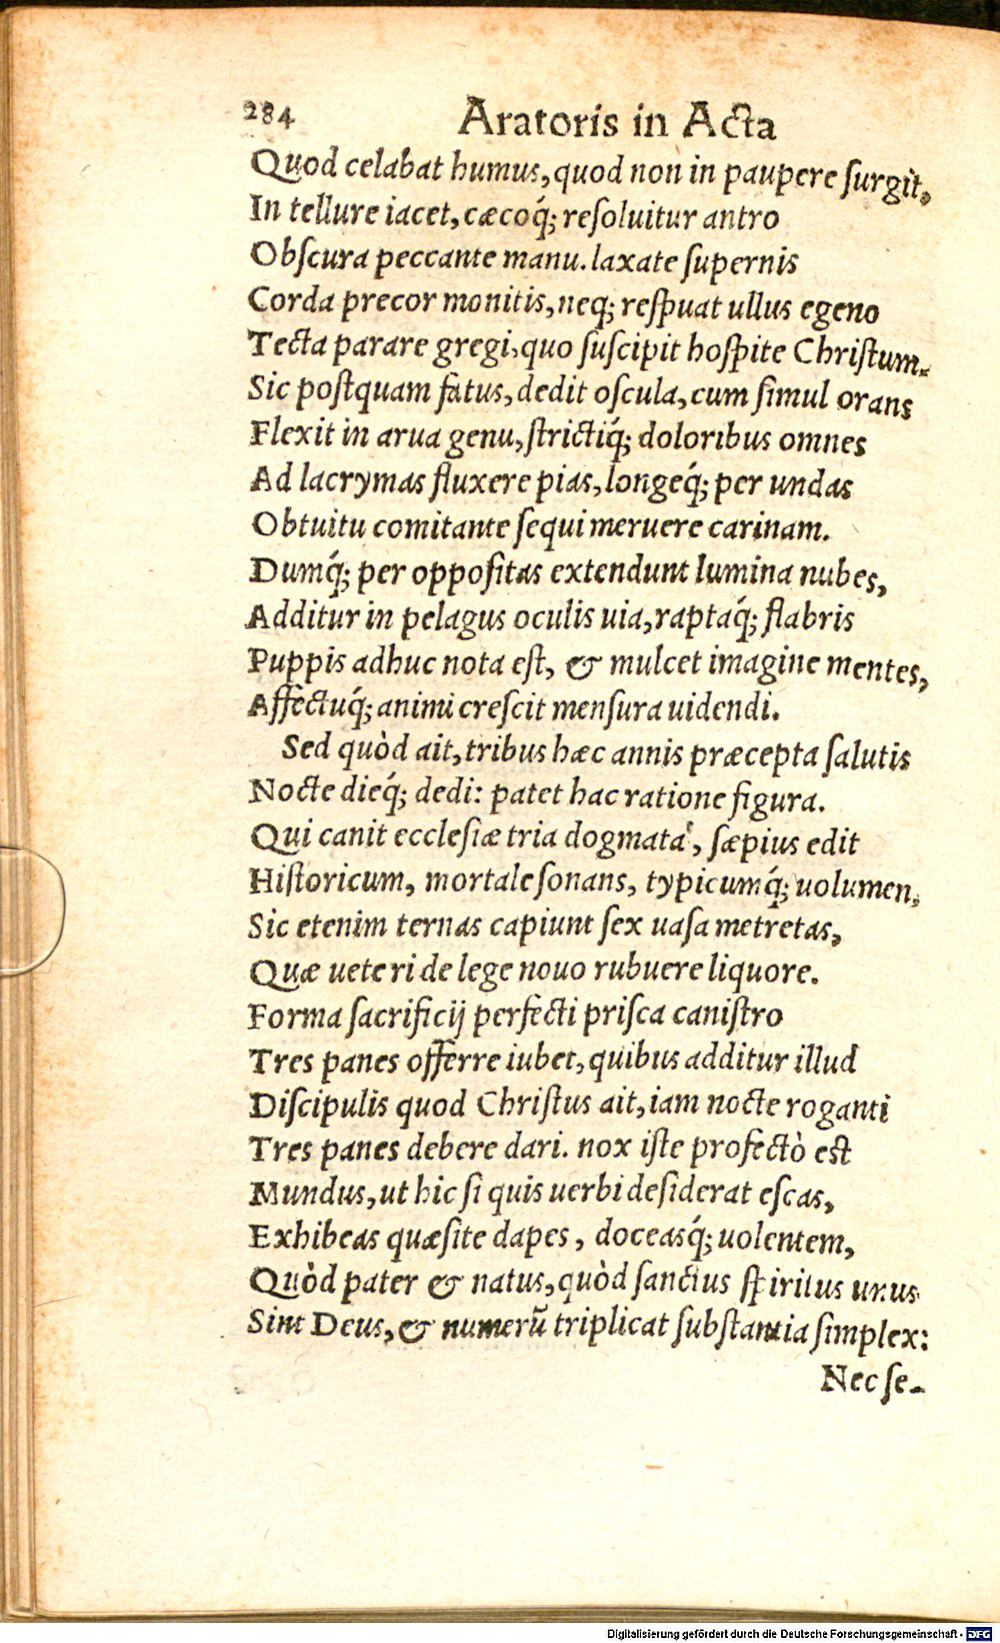 284 Aratoris in Acta
Quod celabat humus, quod non in paupere ſurgit,
In tellure iacet, cæcoq́; reſoluitur antro
Obſcura peccante manu. laxate ſupernis
Corda precor monitis, neq; reſpuat ullus egeno
Tecta parare gregi, quo ſuſcipit hoſpite Chriſtum.
Sic poſtquam fatus, dedit oſcula, cum ſimul orans
Flexit in arua genu, ſtrictiq́; doloribus omnes
Ad lacrymas fluxere pias, longeq́; per undas
Obtuitu comitante ſequi meruere carinam.
Dumq́; per oppoſitas extendunt lumina nubes,
Additur in pelagus oculis uia, raptaq́; flabris
Puppis adhuc nota eſt, & mulcet imagine mentes,
Affectuq́; animi creſcit menſura uidendi.
Sed quòd ait, tribus hæc annis præcepta ſalutis
Nocte dieq́; dedi: patet hac ratione figura.
Qui canit eccleſiæ tria dogmata, ſæpius edit
Hiſtoricum, mortale ſonans, typicumq́; uolumen,
Sic etenim ternas capiunt ſex uaſa metretas,
Quæ ueteri de lege nouo rubuere liquore.
Forma ſacrificij perfecti priſca caniſtro
Tres panes offerre iubet, quibus additur illud
Diſcipulis quod Chriſtus ait, iam nocte roganti
Tres panes debere dari. nox iſte profectò eſt
Mundus, ut hic ſi quis uerbi deſiderat eſcas,
Exhibeas quæſite dapes, doceasq́; uolentem,
Quòd pater & natus, quòd ſanctus ſpiritus unus
Sint Deus, & numerũ triplicat ſubſtantia ſimplex:
Nec ſe-
Digitalisierung gefördert durch die Deutsche Forschungsgemeinschaft - DFG